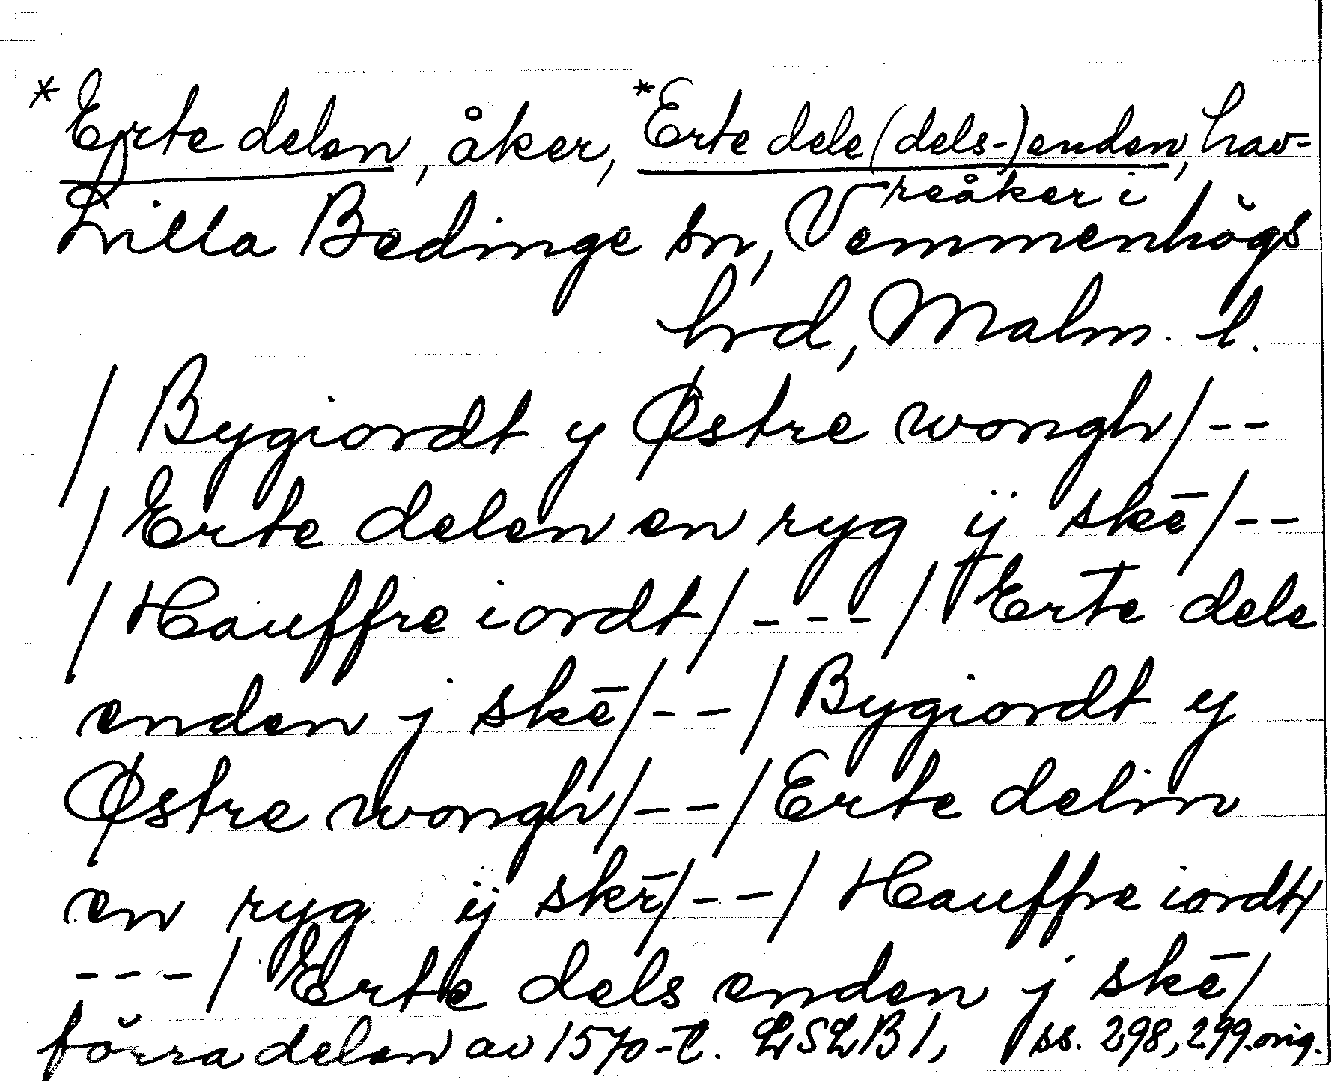 *Erte delen, åker, *Erte dele(dels-)enden, hav-
reåker i
Lilla Bedinge sn, Vemmenhögs
hrd, Malm. l.
/ Bygiordt y Østre wongh/--
/ Erte delen en ryg ij skē/--
/ Hauffre iordt/---/ Erte dele
enden j skē/--/ Bygiordt y
Østre wongh/--/ Erte delin
en ryg ij skē/--/ Hauffre iordt/
---/ Erte dels enden j skē/
förra delen av 1570-t. LSLB 1, ss. 298, 299. orig.